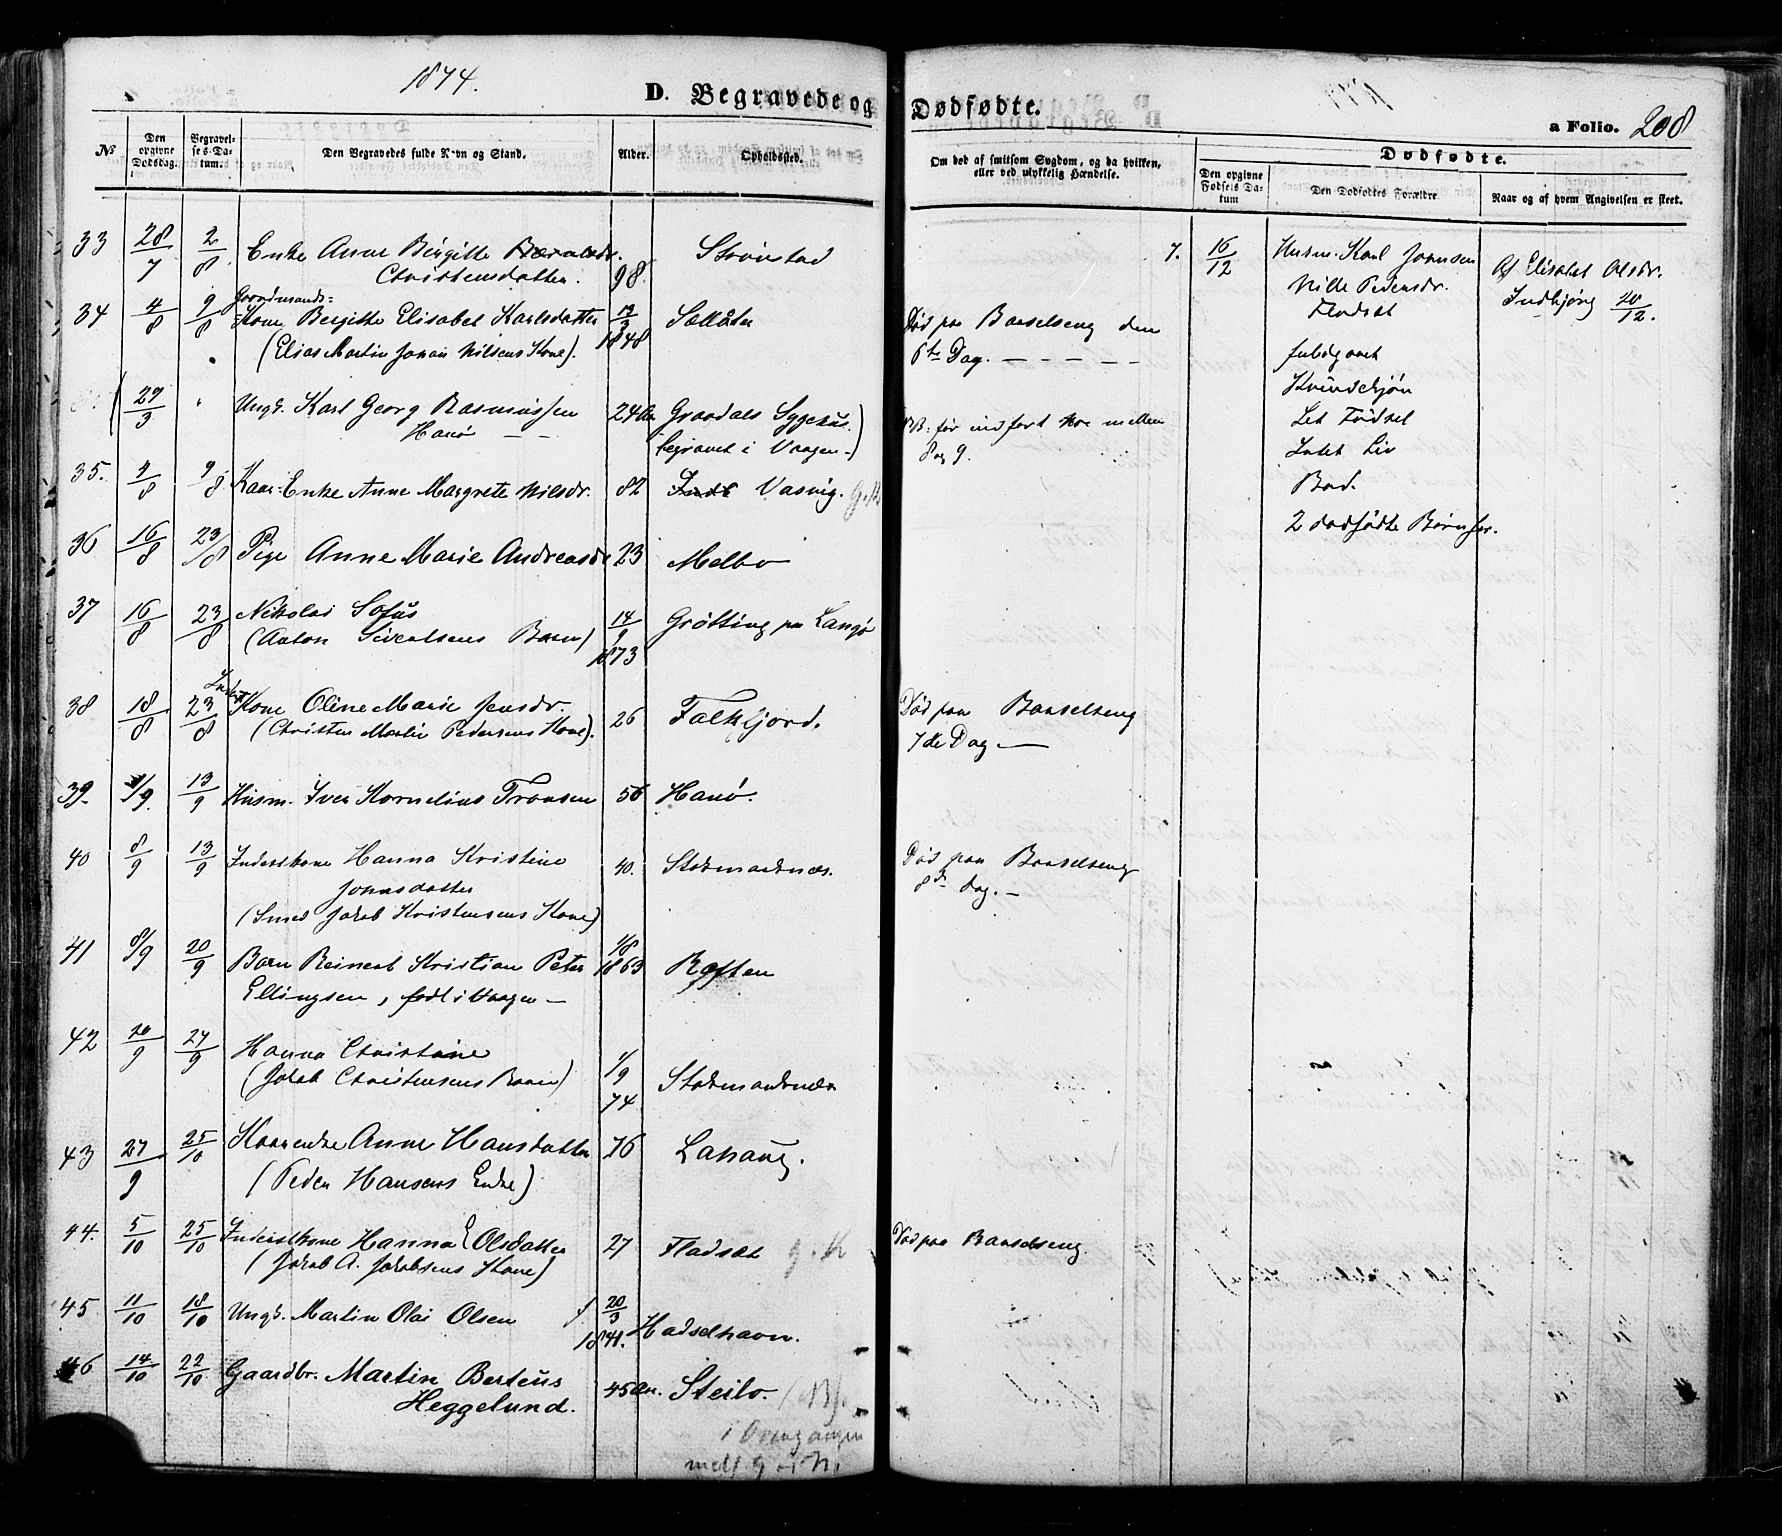 1874.
D. Begravede og
№
Den opgivne Dødsdag.
Begravelses-Datum.
Den Begravedes fulde Navn og Stand.
Alder.
Opholdssted.
33 28/7 2/8 Enke Anne Birgitte
Christensdatter. 98. Stronstad
Gaardmands-
34 4/8 9/8 Kone Bergitte Elisabet Karlsdatter 12/3 1848 Sellåter
(Elias Martin Johan Nilsens Kone).
29/3 " Ungk. Karl Georg Rasmussen 24 Aar Gravdals Sygehus.
Hanø — — begravet i Vaagen-)
35. 4/8 9/8 Kaar-Enke Anne Margrete Nilsdr. 82 Vasvig.
36 16/8 23/8 Pige Anne Marie Andreasdr 23 Melbo
37 16/8 23/8 Nikolai Sofus 14/9 1873 Grötting paa Langø
(Anton Sivertsens Barn)
38 18/8 23/8 Inderst Kone Oline Marie Jensdr. 26 Falkfjord.
(Christen Martin Pedersens Kone).
39. /9. 13/9 Husm. Iver Kornelius Tronsen 56 Hanø.
40 8/9 13/9 Inderstkone Hanna Kristine 40. Stokmarknæs.
Jonasdatter
(Smed Jakob Kristensens Kone)
41 8/9 20/9 Barn Reinert Kristian Peter 1/8 1863 Raften
Ellingsen, født i Vaagen —
42 20/9 27/9 Hanna Christine
(Jakob Christensens Barn) 1/9 74 Stokmarknæs
43 27/9 25/10 Kaarenke Anne Hansdatter 76 Lahaug.
(Peder Hansens Enke)
44. 5/10 25/10 Inderstkone Hanna E Olsdatter 27 Fladsæt g. K
(Jakob A. Jakobsens Kone)
45 11/10 18/10 Ungk. Martin Olai Olsen f 20/3 1841. Hadselhavn.
46 14/10 22/10 Gaardbr. Martin Berteus 45 Aar. Steilo.
Heggelund.
Dødfødte.
a Folio. 208
Om død af smitsom Sygdom, og da hvilken, eller ved ulykkelig Hændelse.
Dødfødte.
Den opgivne Fødsels Datum
Den Dødfødtes Forældre
Naar og af hvem Angivelsen er skeet.
7. 16/12 Husm. Karl Jørnsen
Nille Pedersdr.
Fladsæt
fuldbaaret
Kvindekjøn
Let Födsel
Intet Liv
Bad.
2 dødfødte Börn før.
Af Elisabet Olsdr.
Indbjörg 20/12.
Død paa Barselseng den
6te Dag. — — — — —
NB: før indført No mellem
8 og 9.
Død paa Barselseng
7de Dag. —
Død paa Barselseng
8de dag. —
Død paa Barselseng.